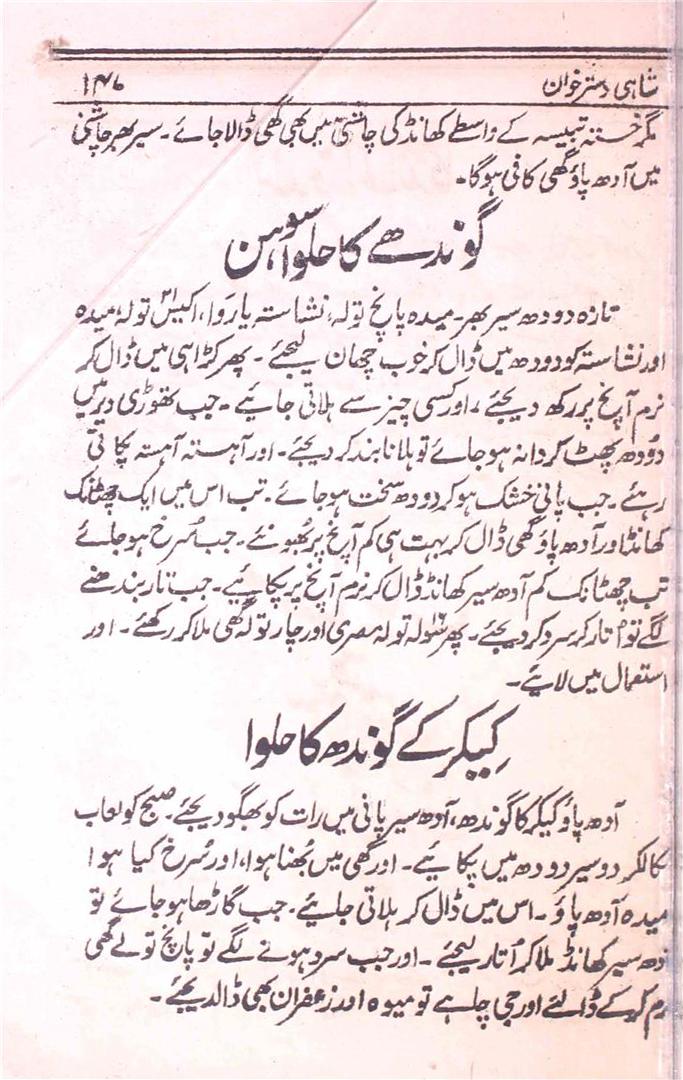 شاہی دسترخوان ۱۴۷
مگر خستہ تبیسہ کے واسطے کھانڈ کی چاشنی میں بھی گھی ڈالا جائے۔ سیر بھر چاشنی
میں آدھ پاؤ گھی کافی ہوگا۔
گوندھے کا حلوا سوہن
تازہ دودھ سیر بھر۔ میدہ پانچ تولہ، نشاستہ یا روا، اکیس ۲۱ تولہ، میدہ
اور نشاستہ کو دودھ میں ڈال کر خوب چھان لیجئے۔ پھر کڑاہی میں ڈال کر
نرم آنچ پر رکھ دیجئے، اور کسی چیز سے ہلاتی جایئے۔ جب تھوڑی دیر میں
دُودھ پھٹ کر دانہ ہو جائے تو ہلانا بند کر دیجئے۔ اور آہستہ آہستہ پکاتی
رہئے۔ جب پانی خشک ہو کر دودھ سخت ہو جائے۔ تب اس میں ایک چھٹانک
کھانڈ اور آدھ پاؤ گھی ڈال کر بہت ہی کم آنچ پر بُھونئے۔ جب سُرخ ہو جائے
تب چھٹانک کم آدھ سیر کھانڈ ڈال کر نرم آنچ پر پکایئے۔ جب تار بندھنے
لگے تو اُتار کر سرد کر دیجئے۔ پھر سولہ ۱۶ تولہ مصری اور چار تولہ گھی ملا کر رکھئے۔ اور
استعمال میں لایئے۔
کِیکر کے گوندھ کا حلوا
آدھ پاؤ کیکر کا گوندھ، آدھ سیر پانی میں رات کو بھگو دیجئے۔ صبح کو لعاب
نکالکر دو سیر دودھ میں پکایئے۔ اور گھی میں بُھنا ہوا، اور سُرخ کیا ہوا
میدہ آدھ پاؤ۔ اس میں ڈال کر ہلاتی جایئے۔ جب گاڑھا ہو جائے تو
آدھ سیر کھانڈ ملا کر اُتار لیجئے۔ اور جب سرد ہونے لگے تو پانچ تولے گھی
گرم کر کے ڈالئے اور جی چاہے تو میوہ اور زعفران بھی ڈالدیجئے۔